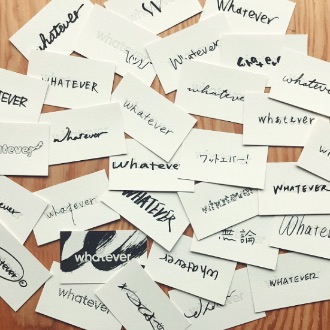 whatever
Whatever
whatever
Whatever
whatever
WHATEVER
whatever
whatever
whatever
Whatever
whatever
whatever
whatever
ワットエバー!
whatever
WHATEVER
WHATEVER
whatever
whatever
無論
Whatever
whatever
whatever
whatever
WHATEVER